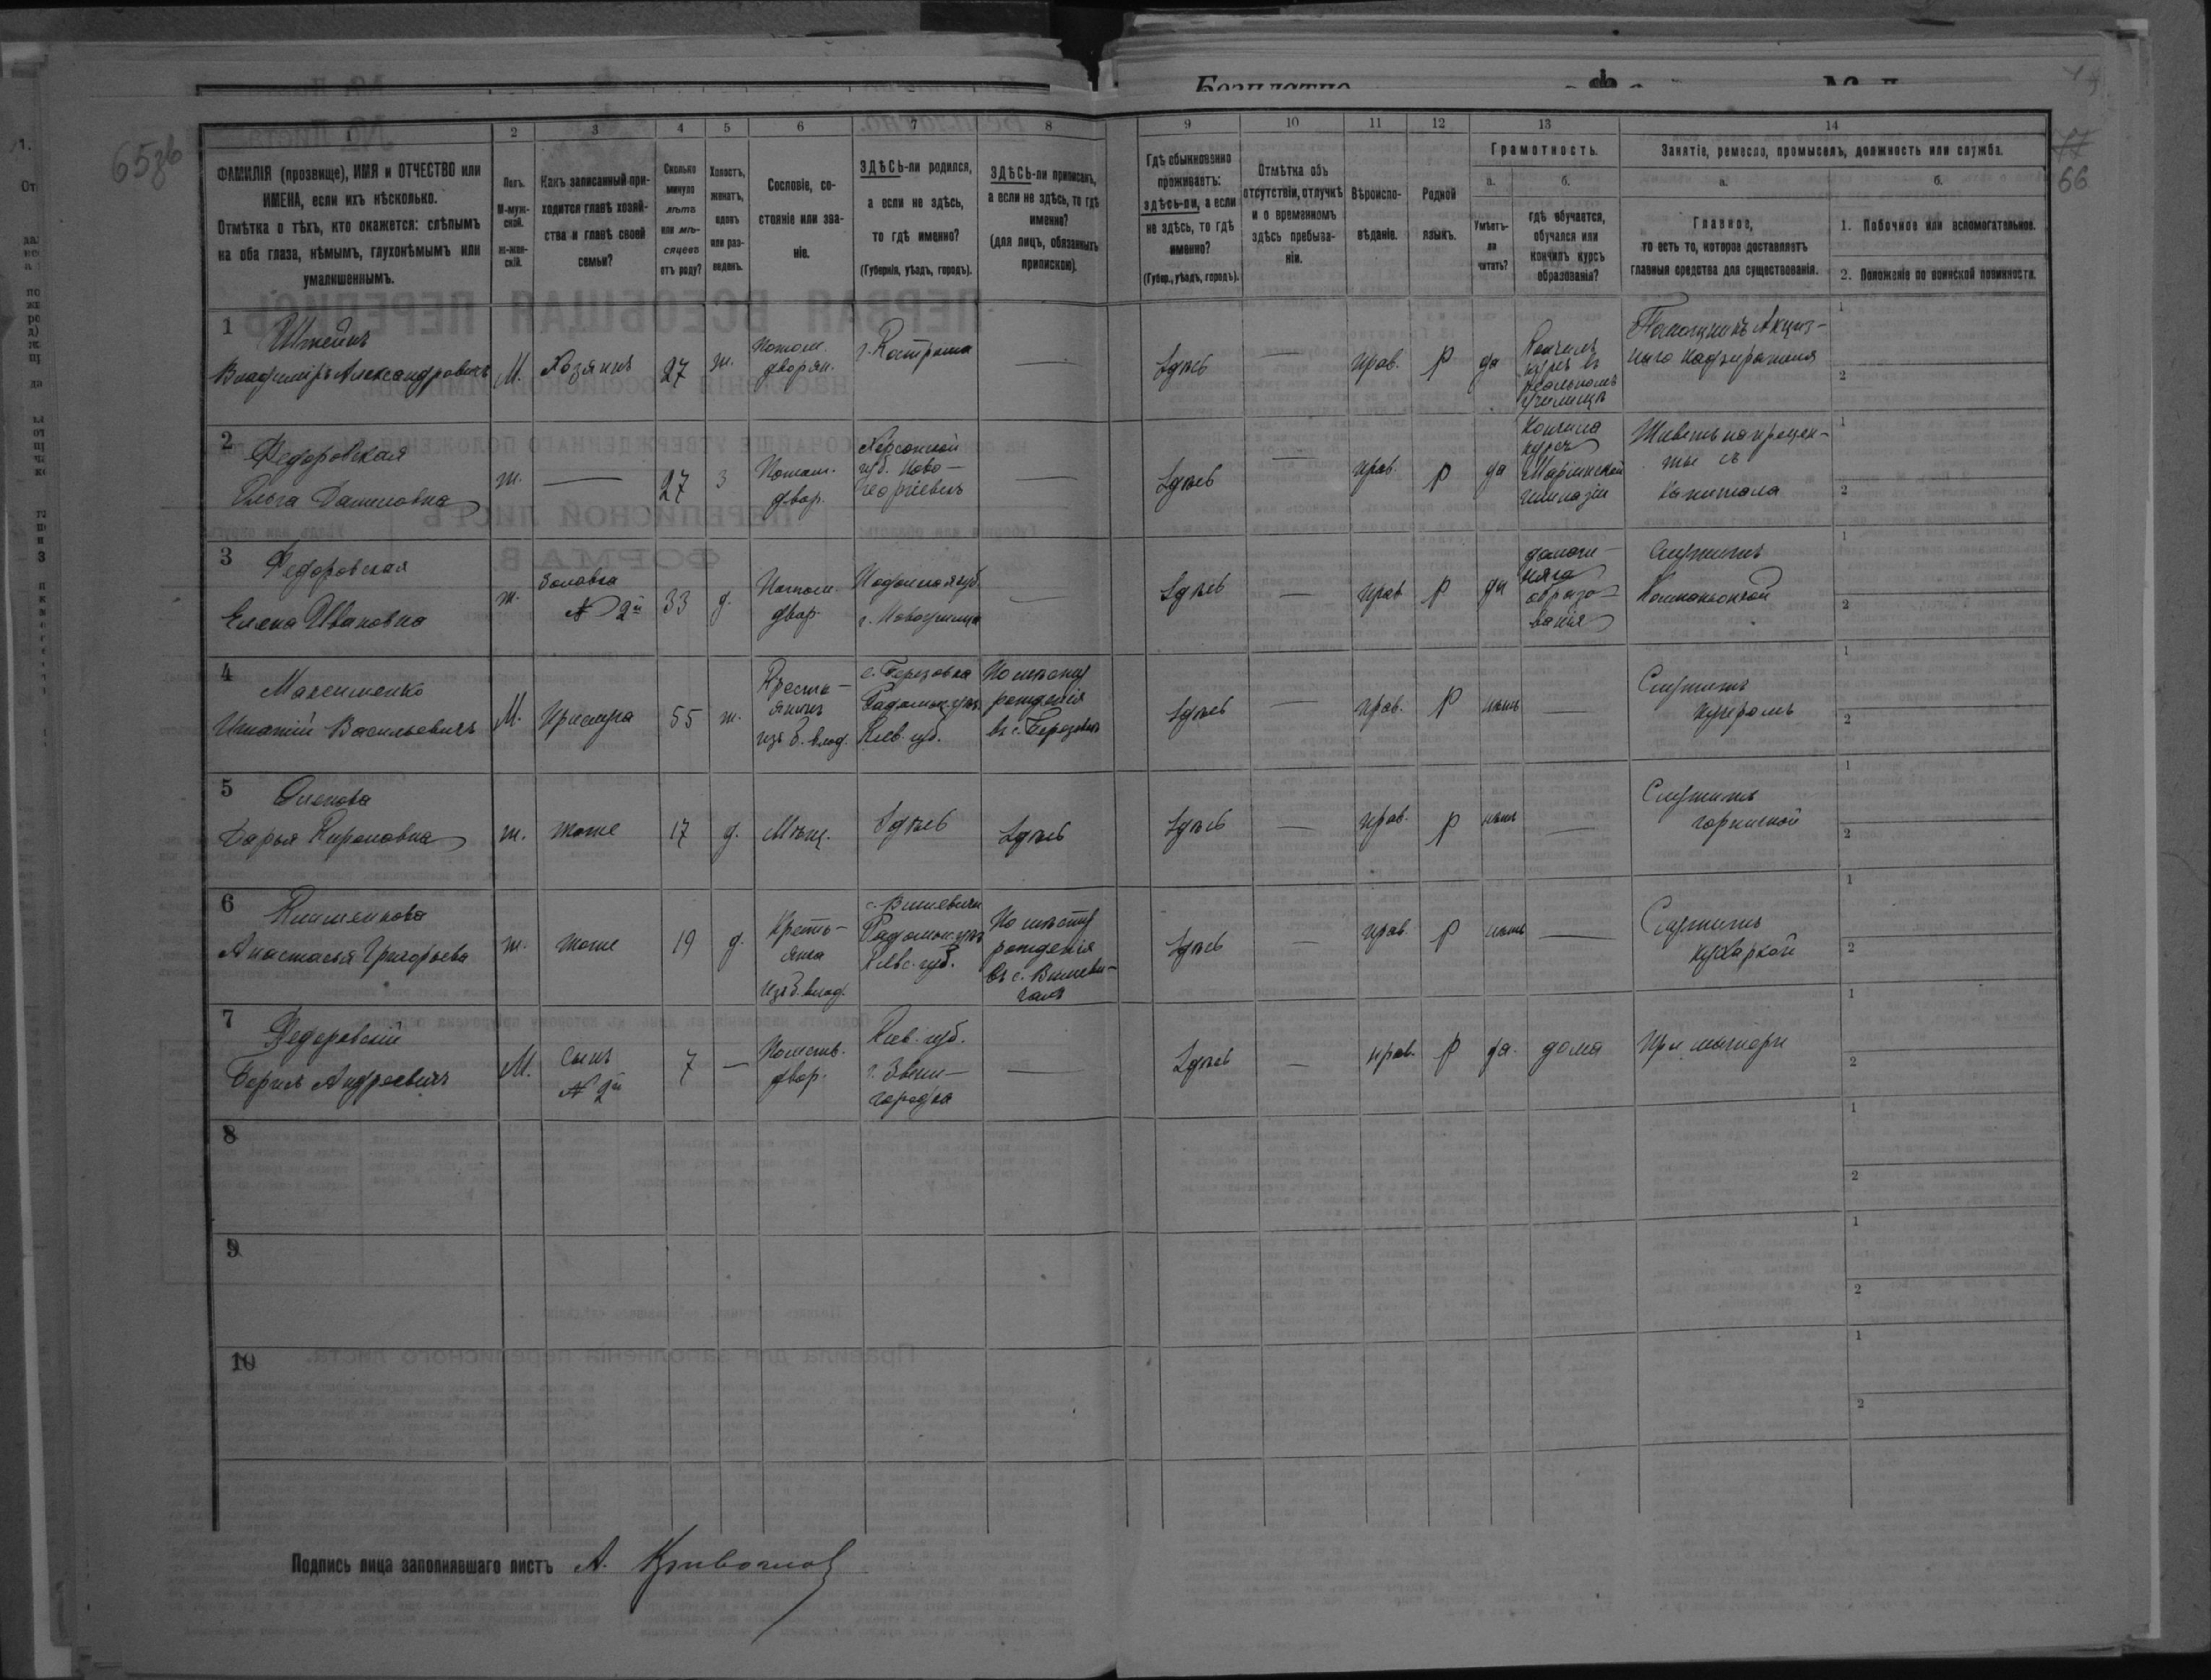 Безплатно
65зв
66
1 2 3 4 5 6 7 8 9 10 11 12 13 14
ФАМИЛІЯ (прозвище), ИМЯ и ОТЧЕСТВО или
ИМЕНА, если ихъ нѣсколько.
Отмѣтка о тѣхъ, кто окажется: слѣпымъ
на оба глаза, нѣмымъ, глухонѣмымъ или
умалишеннымъ.
Полъ.
М-муж-
ской.
ж-жен-
скій.
Какъ записанный при-
ходится главѣ хозяй-
ства и главѣ своей
семьи?
Сколько
минуло
лѣтъ
или мѣ-
сяцевъ
отъ роду?
Холостъ,
женатъ,
вдовъ
или раз-
веденъ.
Сословіе, со-
стояніе или зва-
ніе.
ЗДѢСЬ-ли родился,
а если не здѣсь,
то гдѣ именно?
(Губернія, уѣздъ, городъ).
ЗДѢСЬ-ли приписанъ,
а если не здѣсь, то гдѣ
именно?
(для лицъ, обязанныхъ
припискою).
Гдѣ обыкновенно
проживаетъ:
здѣсь-ли, а если
не здѣсь, то гдѣ
именно?
(Губер., уѣздъ, городъ).
Отмѣтка объ
отсутствіи, отлучкѣ
и о временномъ
здѣсь пребыва-
ніи.
Вѣроиспо-
вѣданіе.
Родной
языкъ.
Грамотность.
а.
Умѣетъ-
ли
читать?
б.
гдѣ обучается,
обучался или
кончилъ курсъ
образованія?
Занятіе, ремесло, промыселъ, должность или служба.
а.
Главное,
то есть то, которое доставляетъ
главныя средства для существованія.
б.
1. Побочное или вспомогательное.
2. Положеніе по воинской повинности.
1
Владиміръ Александровичъ
М.
Хозяинъ
27
ж.
потом.
дворян.
г. Кострома
—
Здѣсь
—
прав.
р
да
Кончилъ
курсъ въ
реальномъ
училищѣ
Помощникъ Акциз-
наго Надзирателя
1
2
2
Федоровская
Ольга Даниловна
ж.
—
27
з
Потом.
двор.
Херсонской
губ. Ново-
георгіевскъ
—
Здѣсь
—
прав.
р
да
Кончила
курсъ
Маріинской
гимназіи
Живетъ на процен-
ты съ
капитала
1
2
3
Федоровская
Елена Ивановна
ж.
Золовка
№ 2й
33
д.
Потом.
двор.
Подольская губ.
г. Новоушица
—
Здѣсь
—
прав
р
да
домаш-
няго
образо-
ванія
Служитъ
Компаньонкой
1
2
4
Игнатій Васильевичъ
М.
Прислуга
55
ж.
Кресть-
янинъ
изъ б. влад.
с. Березовка
Радомыс. уѣз.
Кіев. губ.
По мѣсту
рожденія
въ с. Березовкѣ
Здѣсь
—
прав.
р
нѣтъ
—
Служитъ
кучеромъ
1
2
5
Дарья
ж.
тоже
17
д.
Мѣщ.
Здѣсь
Здѣсь
Здѣсь
—
прав.
р
нѣтъ
—
Служитъ
горничной
1
2
6
Анастасья Григорьева
ж.
тоже
19
д.
Кресть-
янка
изъ б. влад.
с. Вишевичи
Радомыс. уѣз.
Кіевс. губ.
По мѣсту
рожденія
въ с. Вишеви-
чахъ
Здѣсь
—
прав
р
нѣтъ
—
Служитъ
кухаркой
1
2
7
Федоровскій
Борисъ Андреевичъ
М.
Сынъ
№ 2й
7
—
Потомв.
двор.
Кіев. губ.
г. Звени-
городка
—
Здѣсь
—
прав.
р
да.
дома
При матери
1
2
8
1
2
9
1
2
10
1
2
Подпись лица заполнявшаго листъ А.